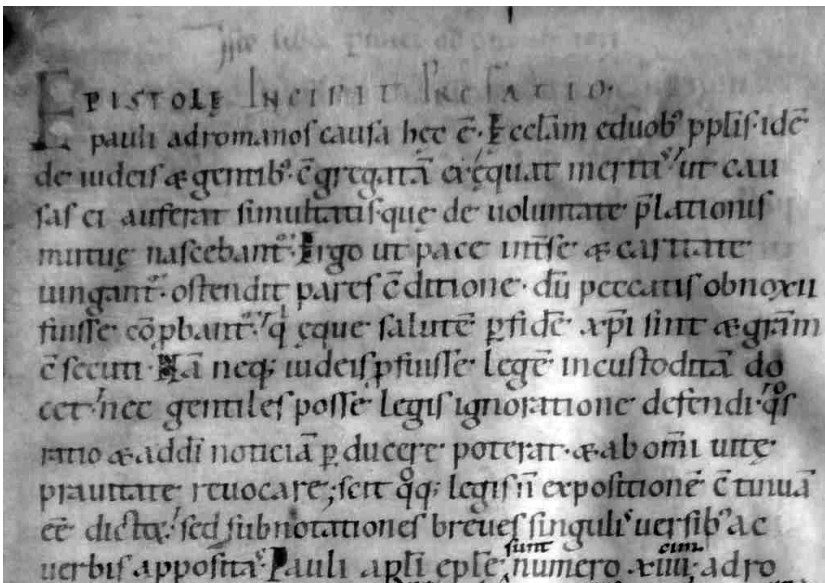 EPISTOLĘ INCIPIT PREFATIO.
pauli ad romanos causa hec ē. Ęcclam eduob; pplis. idē
de iudeis & gentib; c̄gregatā exęquat meritis ut cau
sas ei auferat simultatisquę de uoluntate p̄lationis
mutuę nascebant. Ergo ut pace inter se & caritate
iungant. ostendit pares c̄ditione. dū peccatis obnoxii
fuisse cōpbant. qi ęque salutē p̱ fidē xp̄i sint & grām
c̄secuti. Nā neq; iudeis pfuisse legē incustoditā do
cet. nec gentiles posse legis ignoratione defendi. qos
ratio & ad dī noticiā p̱ducere poterat. & ab om̄i uitę
prauitate reuocare; scit qoq; legis n̄ expositionē c̄tinuā
eē dictā. sed subnotationes breues singulis uersib; ac
sunt cim
uerbis apposita. Pauli apli eple numero xiiii; ad ro